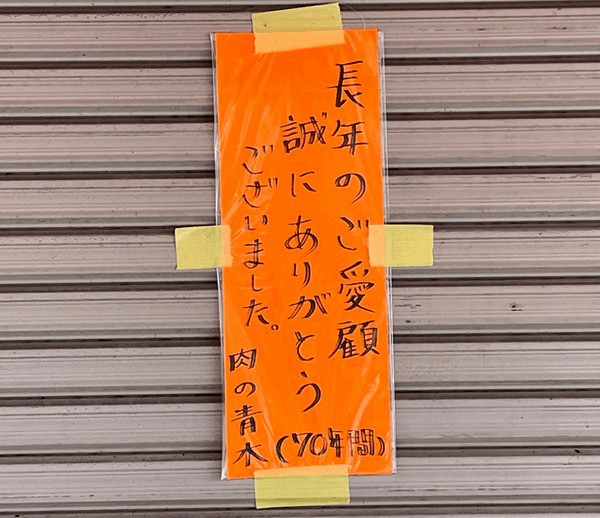 長年のご愛顧
誠にありがとう
ございました。
(70年間)
肉の青木